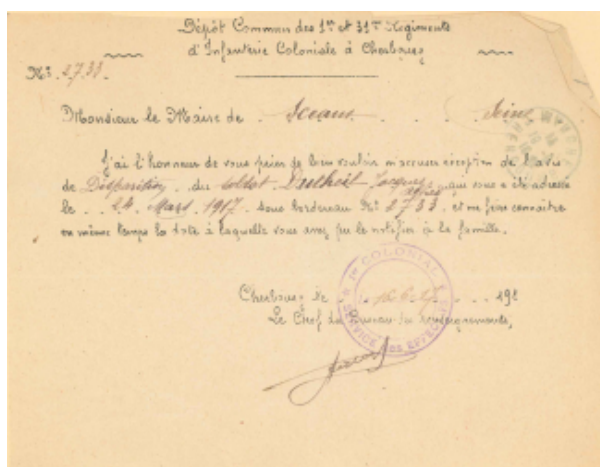 Dépôt Commun des 1er et 31me Régiments
d'Infanterie Coloniale à Cherbourg
No. 2733.
Monsieur le Maire de Sceaux Seine
J'ai l'honneur de vous prier de bien vouloir m'accuser réception de l'avis
de Disparition du soldat Dutheil Jacques qui vous a été adressé
le 24 Mars 1917 sous bordereau No 2733 et me faire connaître
en même temps la date à laquelle vous avez pu le notifier à la famille.
Cherbourg le 191
Le Chef du Bureau des Renseignements,
COLONIAL
SERVICE DES EFFECTIFS